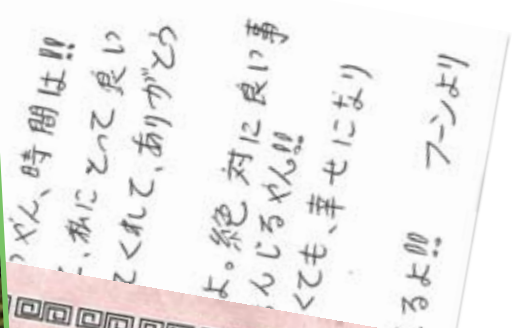 ゃん、時間は!!
、私にとって良い
てくれて、ありがとう
よ。絶対に良い事
んじるやん!!
くても、幸せになり
るよ!! フーンより